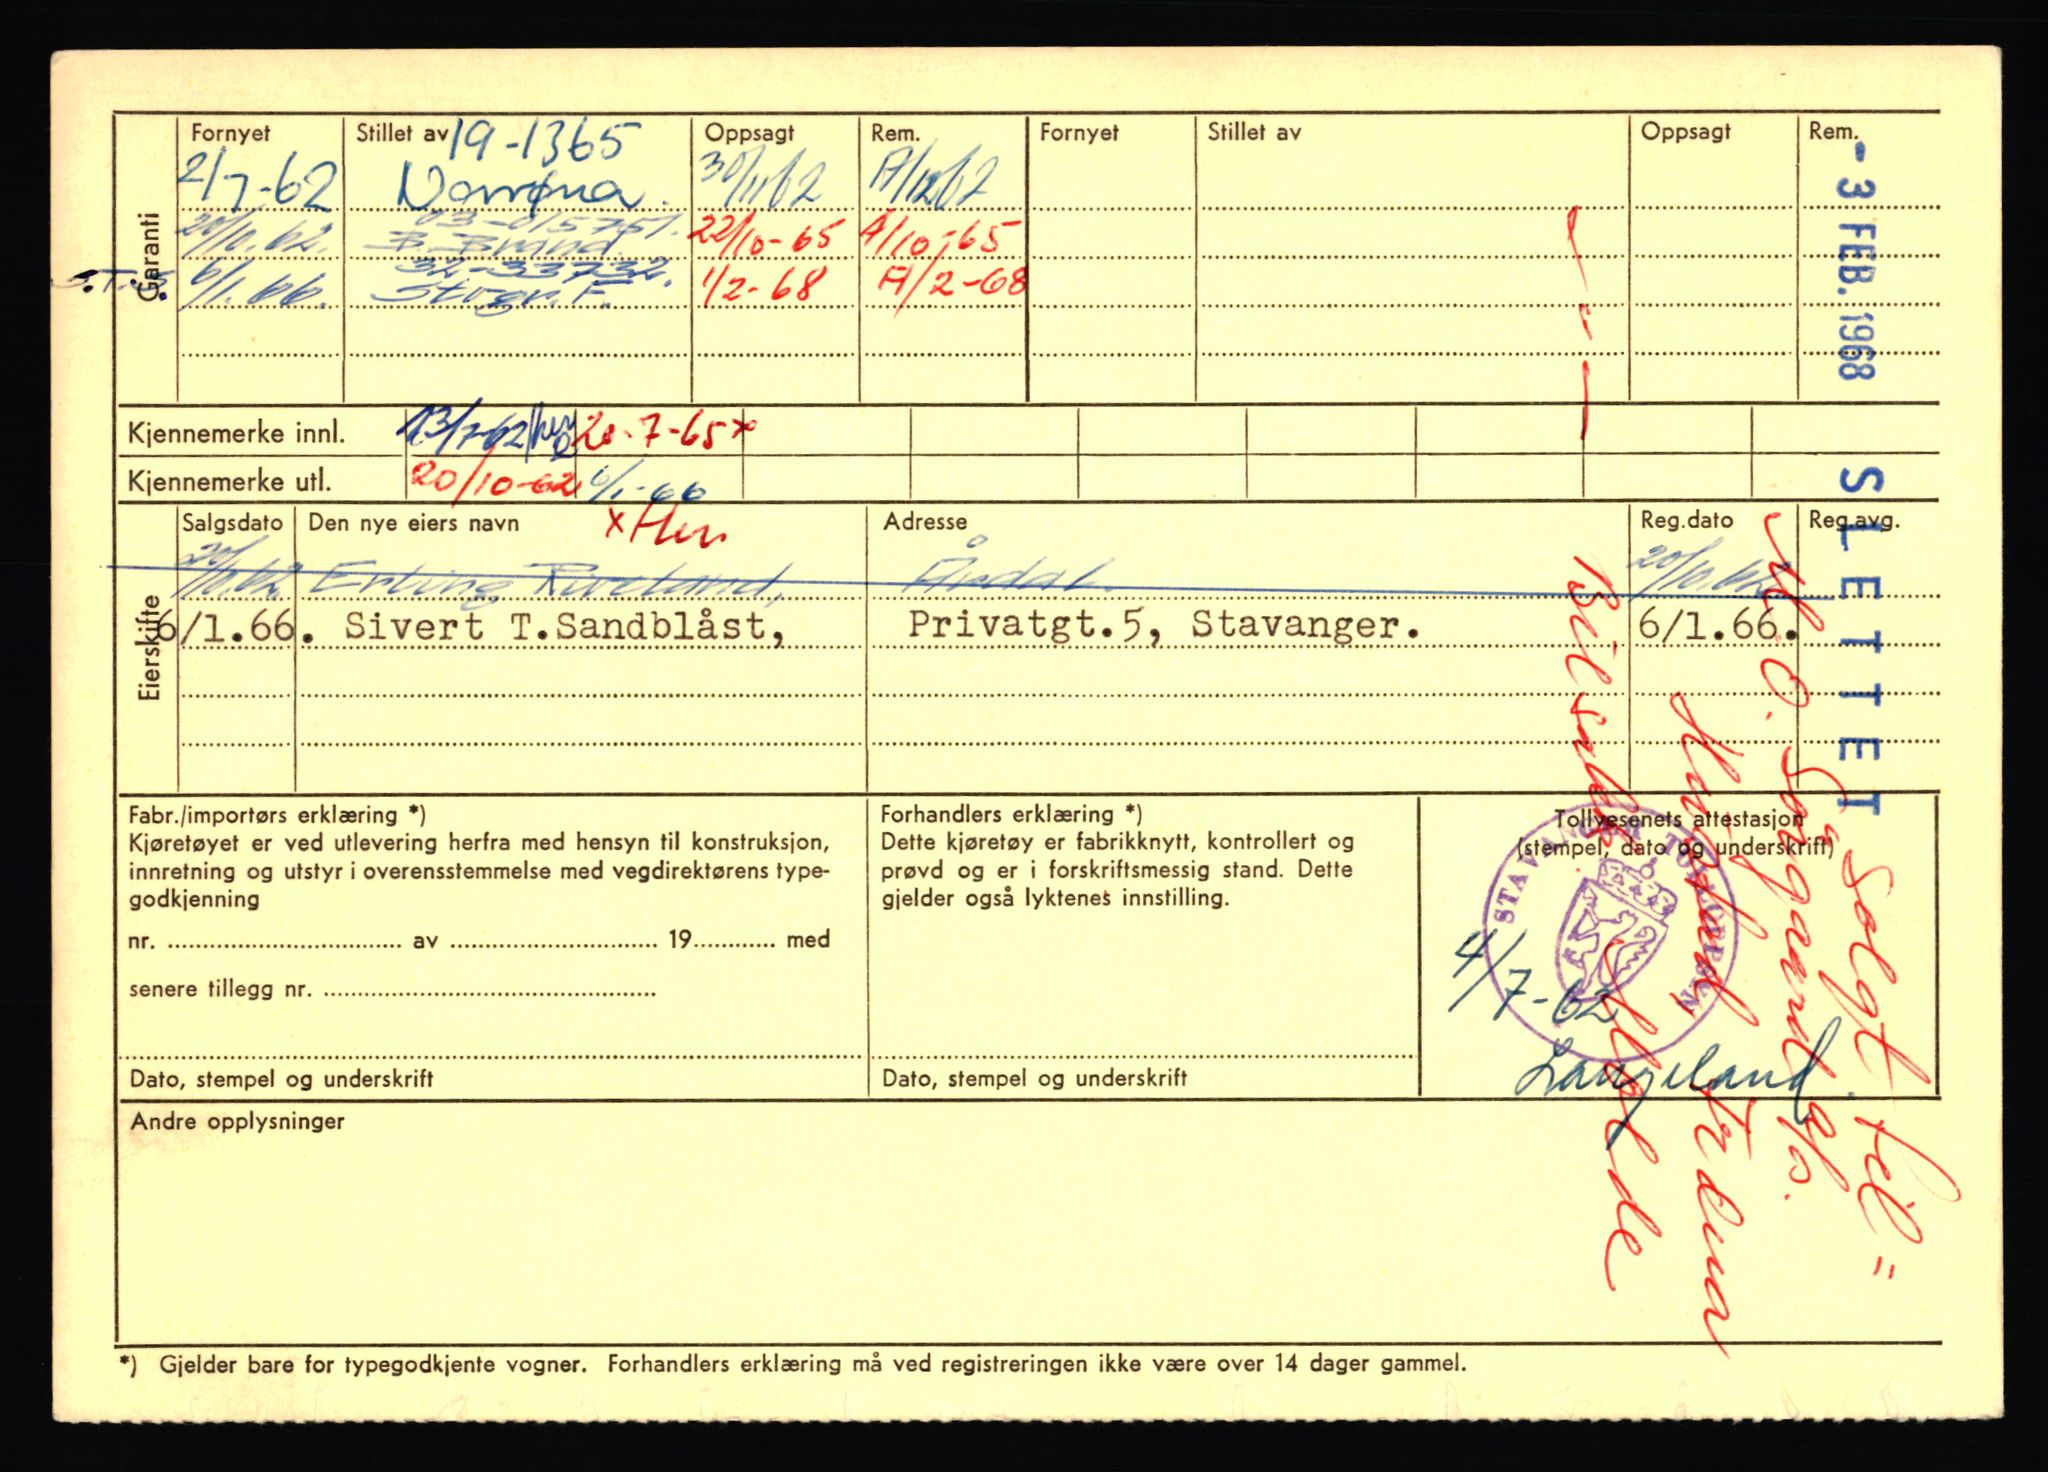 Fornyet Stillet av 19-1365 Oppsagt Rem. Fornyet Stillet av Oppsagt Rem.
2/7-62 Norrøna. 30/11 62 A/12 62
Garanti
20/10.62. 03-015751. B. Brand 22/10-65 A/10-65
S.T.S. 6/1.66. 32-33732. Stvgr. F. 1/2-68 A/2-68
- 3 FEB. 1968
SLETTET
Kjennemerke innl. 13/7-62 20-7-65 x
Kjennemerke utl. 20/10-62 6/1-66
x Hen
Eierskifte
Salgsdato Den nye eiers navn Adresse Reg.dato Reg.avg.
20/10.62. Erling Riveland, Årdal. 20/10.62
6/1.66. Sivert T.Sandblåst, Privatgt.5, Stavanger. 6/1.66.
Fabr./importørs erklæring *)
Kjøretøyet er ved utlevering herfra med hensyn til konstruksjon,
innretning og utstyr i overensstemmelse med vegdirektørens type-
godkjenning
nr. av 19 med
senere tillegg nr.
Dato, stempel og underskrift
Forhandlers erklæring *)
Dette kjøretøy er fabrikknytt, kontrollert og
prøvd og er i forskriftsmessig stand. Dette
gjelder også lyktenes innstilling.
Dato, stempel og underskrift
Tollvesenets attestasjon
(stempel, dato og underskrift)
STAVANGER TOLLOPPSYN
4/7-62
Langeland
Solgt til =
Andre opplysninger
*) Gjelder bare for typegodkjente vogner. Forhandlers erklæring må ved registreringen ikke være over 14 dager gammel.